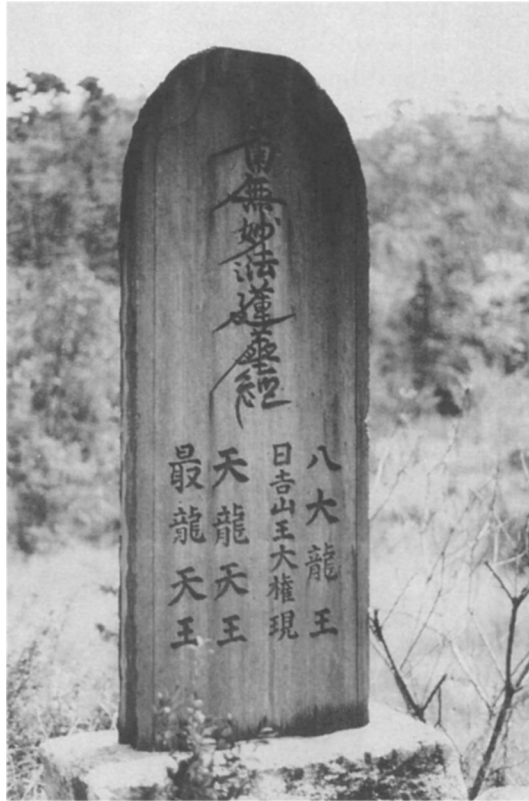 南無妙法蓮華經
八大龍王
日吉山王大権現
天龍天王
最龍天王